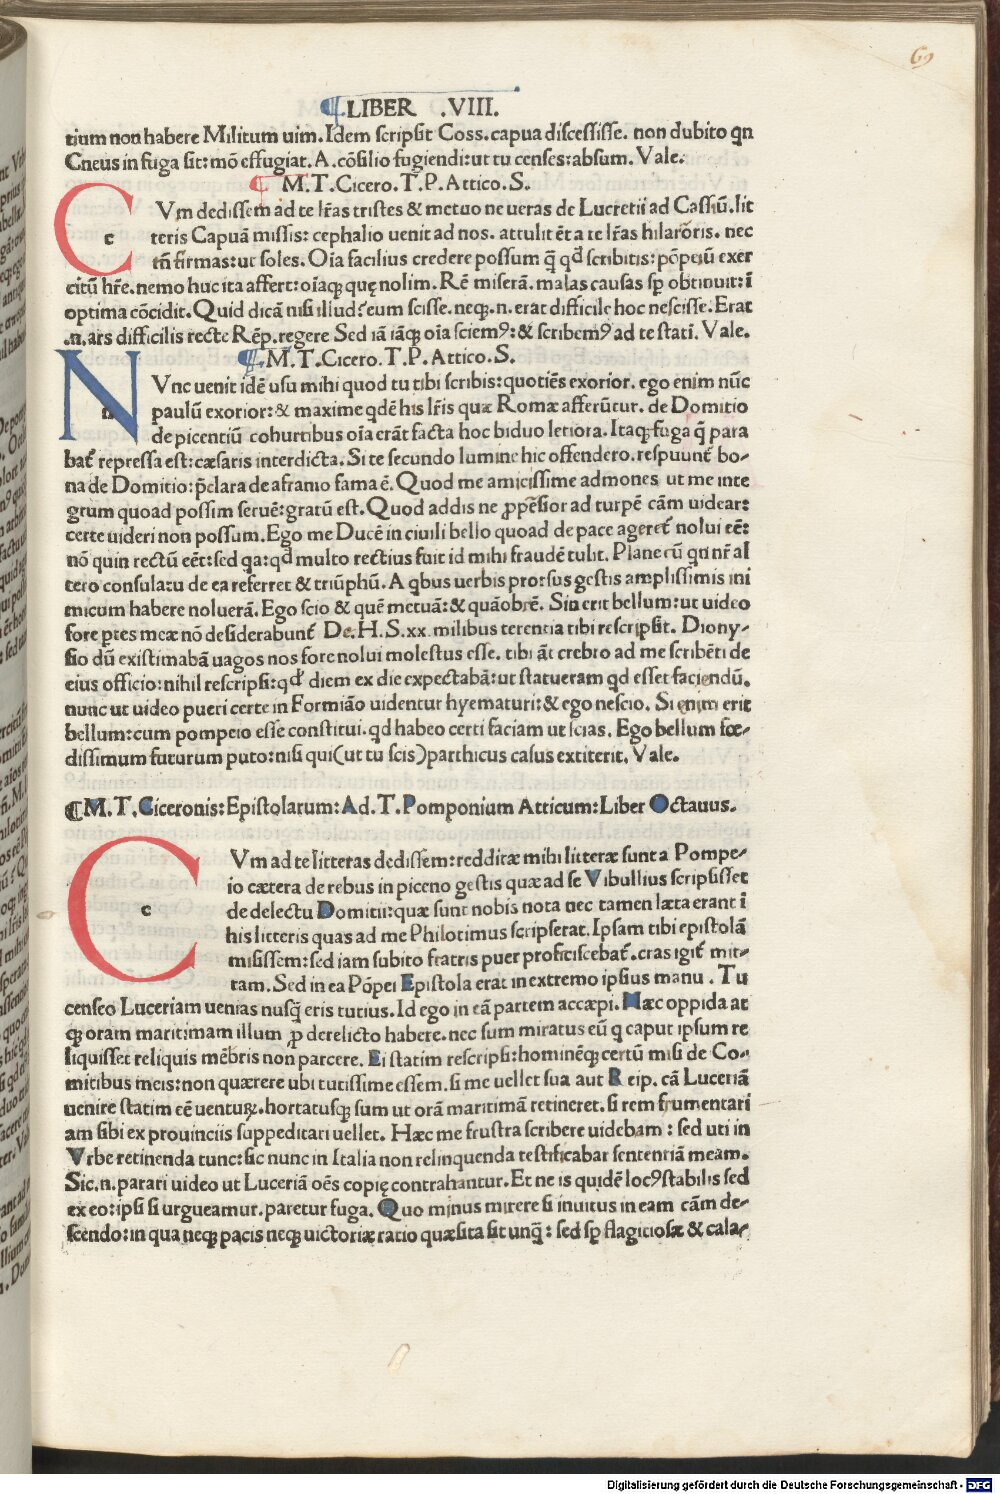 69
¶LIBER .VIII.
tium non habere Militum uim. Idem scripsit Coss. capua discessisse. non dubito qn
Cneus in fuga sit: mō effugiat. A. cōsilio fugiendi: ut tu censes: absum. Vale.
¶ M. T. Cicero. T. P. Attico. S.
CVm dedissem ad te lr̃as tristes & metuo ne ueras de Lucretii ad Cassiū. lit
teris Capuā missis: cephalio uenit ad nos. attulit ēt a te lr̃as hilarōris. nec
tñ firmas: ut soles. Oĩa facilius credere possum q̄ qđ scribitis: pōpeiū exer
citũ hr̃e. nemo huc ita affert: oĩaqꝫ quę nolim. Rē miserā. malas causas sꝑ obtinuit: ĩ
optima cōcidit. Quid dicā nisi illud: eum scisse. neqꝫ .n. erat difficile hoc nescisse. Erat
.n. ars difficilis recte Rēp. regere Sed iā iāqꝫ oĩa sciemꝰ: & scribemꝰ ad te statī. Vale.
¶. M. T. Cicero. T. P. Attico. S.
NVnc uenit idē usu mihi quod tu tibi scribis: quotiēs exorior. ego enim nūc
paulū exorior: & maxime qdē his lr̃is quæ Romæ afferūtur. de Domitio
de picentiū cohurtibus oĩa erāt facta hoc biduo letiora. Itaqꝫ fuga q̄ para
bat̃ repressa est: cæsaris interdicta. Si te secundo lumine hic offendero. respuunt̃ bo-
na de Domitio: p̄clara de afranio fama ē. Quod me amicissime admones ut me inte
grum quoad possim seruē: gratū est. Quod addis ne ꝓpēsior ad turpē cām uidear:
certe uideri non possum. Ego me Ducē in ciuili bello quoad de pace ageret̃ nolui eē:
nō quin rectū eēt: sed qa: qđ multo rectius fuit id mihi fraudē tulit. Plane eū qui nr̃ al
tero consulatu de ea referret & triūphū. A qbus uerbis prorsus gestis amplissimis ini
micum habere noluerā. Ego scio & quē metuā: & quāobrē. Sin erit bellum: ut uideo
fore ꝑtes meæ nō desiderabunt̃ De. H. S. xx. milibus terentia tibi rescripsit. Diony-
sio dū existimabā uagos nos fore nolui molestus esse. tibi āt crebro ad me scribēti de
eius officio: nihil rescripsi: qđ diem ex die expectabā: ut statueram qđ esset faciendū.
nunc ut uideo pueri certe in Formiāo uidentur hyematuri: & ego nescio. Si enim erit
bellum: cum pompeio esse constitui. qđ habeo certi faciam ut scias. Ego bellum fœ-
dissimum futurum puto: nisi qui (ut tu scis) parthicus casus extiterit. Vale.
¶M. T. Ciceronis: Epistolarum: Ad. T. Pomponium Atticum: Liber Octauus.
CVm ad te litteras dedissem: redditæ mihi litteræ sunt a Pompe-
io cætera de rebus in piceno gestis quæ ad se Vibullius scripsisset
de delectu Domitii: quæ sunt nobis nota nec tamen læta erant ĩ
his litteris quas ad me Philotimus scripserat. Ipsam tibi epistolā
misissem: sed iam subito fratris puer proficiscebat̃. cras igit̃ mit-
tam. Sed in ea Pōpei Epistola erat in extremo ipsius manu. Tu
censeo Luceriam uenias nusq̄ eris tutius. Id ego in eā partem accæpi. Hæc oppida at
qꝫ oram maritimam illum ꝓ derelicto habere. nec sum miratus eū q caput ipsum re
liquisset reliquis mēbris non parcere. Ei statim rescripsi: hominēqꝫ certū misi de Co-
mitibus meis: non quærere ubi tutissime essem. si me uellet sua aut Reip. cā Luceriā
uenire statim eē uenturꝫ. hortatusqꝫ sum ut orā maritimā retineret. si rem frumentari
am sibi ex prouinciis suppeditari uellet. Hæc me frustra scribere uidebam: sed uti in
Vrbe retinenda tunc: sic nunc in Italia non relinquenda testificabar sententiā meam.
Sic. n. parari uideo ut Luceriā oēs copię contrahantur. Et ne is quidē locꝰ stabilis sed
ex eo: ipsi si urgueamur. paretur fuga. Quo minus mirere si inuitus in eam cām de-
scendo: in qua neqꝫ pacis neqꝫ uictoriæ ratio quæsita sit unq̄: sed sꝑ flagitiosæ & cala-
Digitalisierung gefördert durch die Deutsche Forschungsgemeinschaft - DFG